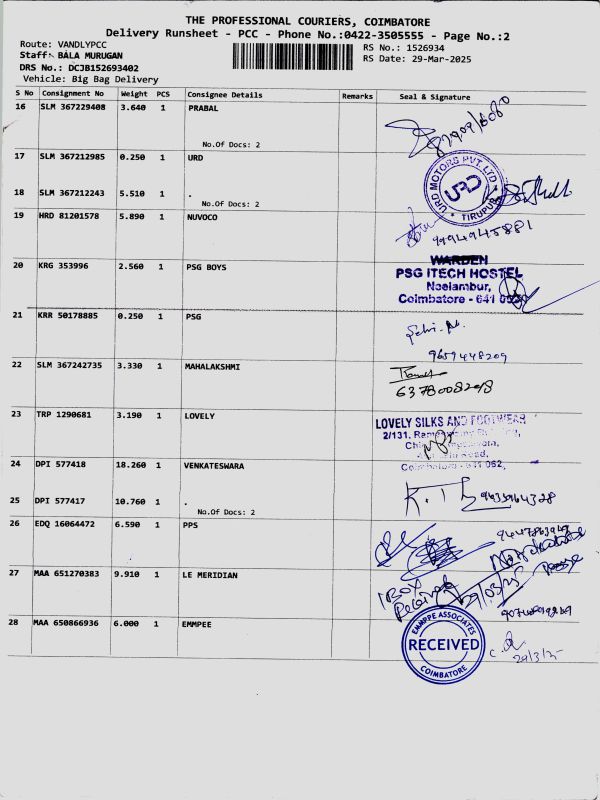 THE PROFESSIONAL COURIERS, COIMBATORE
Delivery Runsheet - PCC - Phone No.:0422-3505555 - Page No.:2
Route: VANDLYPCC
RS No.: 1526934
Staff: BALA MURUGAN
RS Date: 29-Mar-2025
DRS No.: DCJB152693402
Vehicle: Big Bag Delivery
S No Consignment No Weight PCS Consignee Details Remarks Seal & Signature
16 SLM 367229408 3.640 1 PRABAL
No.Of Docs: 2
17 SLM 367212985 0.250 1 URD
URD MOTORS PVT. LTD
URD
TIRUPUR
18 SLM 367212243 5.510 1 .
No.Of Docs: 2
19 HRD 81201578 5.890 1 NUVOCO
9994945881
20 KRG 353996 2.560 1 PSG BOYS
WARDEN
PSG ITECH HOSTEL
Neelambur,
Coimbatore - 641
21 KRR 50178885 0.250 1 PSG
9659448209
22 SLM 367242735 3.330 1 MAHALAKSHMI
23 TRP 1290681 3.190 1 LOVELY
LOVELY SILKS AND FOOTWEAR
2/131,
Road,
Coimbatore - 641 062,
24 DPI 577418 18.260 1 VENKATESWARA
25 DPI 577417 10.760 1 .
No.Of Docs: 2
26 EDQ 16064472 6.590 1 PPS
27 MAA 651270383 9.910 1 LE MERIDIAN
1 Box
Received
28 MAA 650866936 6.000 1 EMMPEE
EMMPPE ASSOCIATES
RECEIVED
COIMBATORE
29/3/25